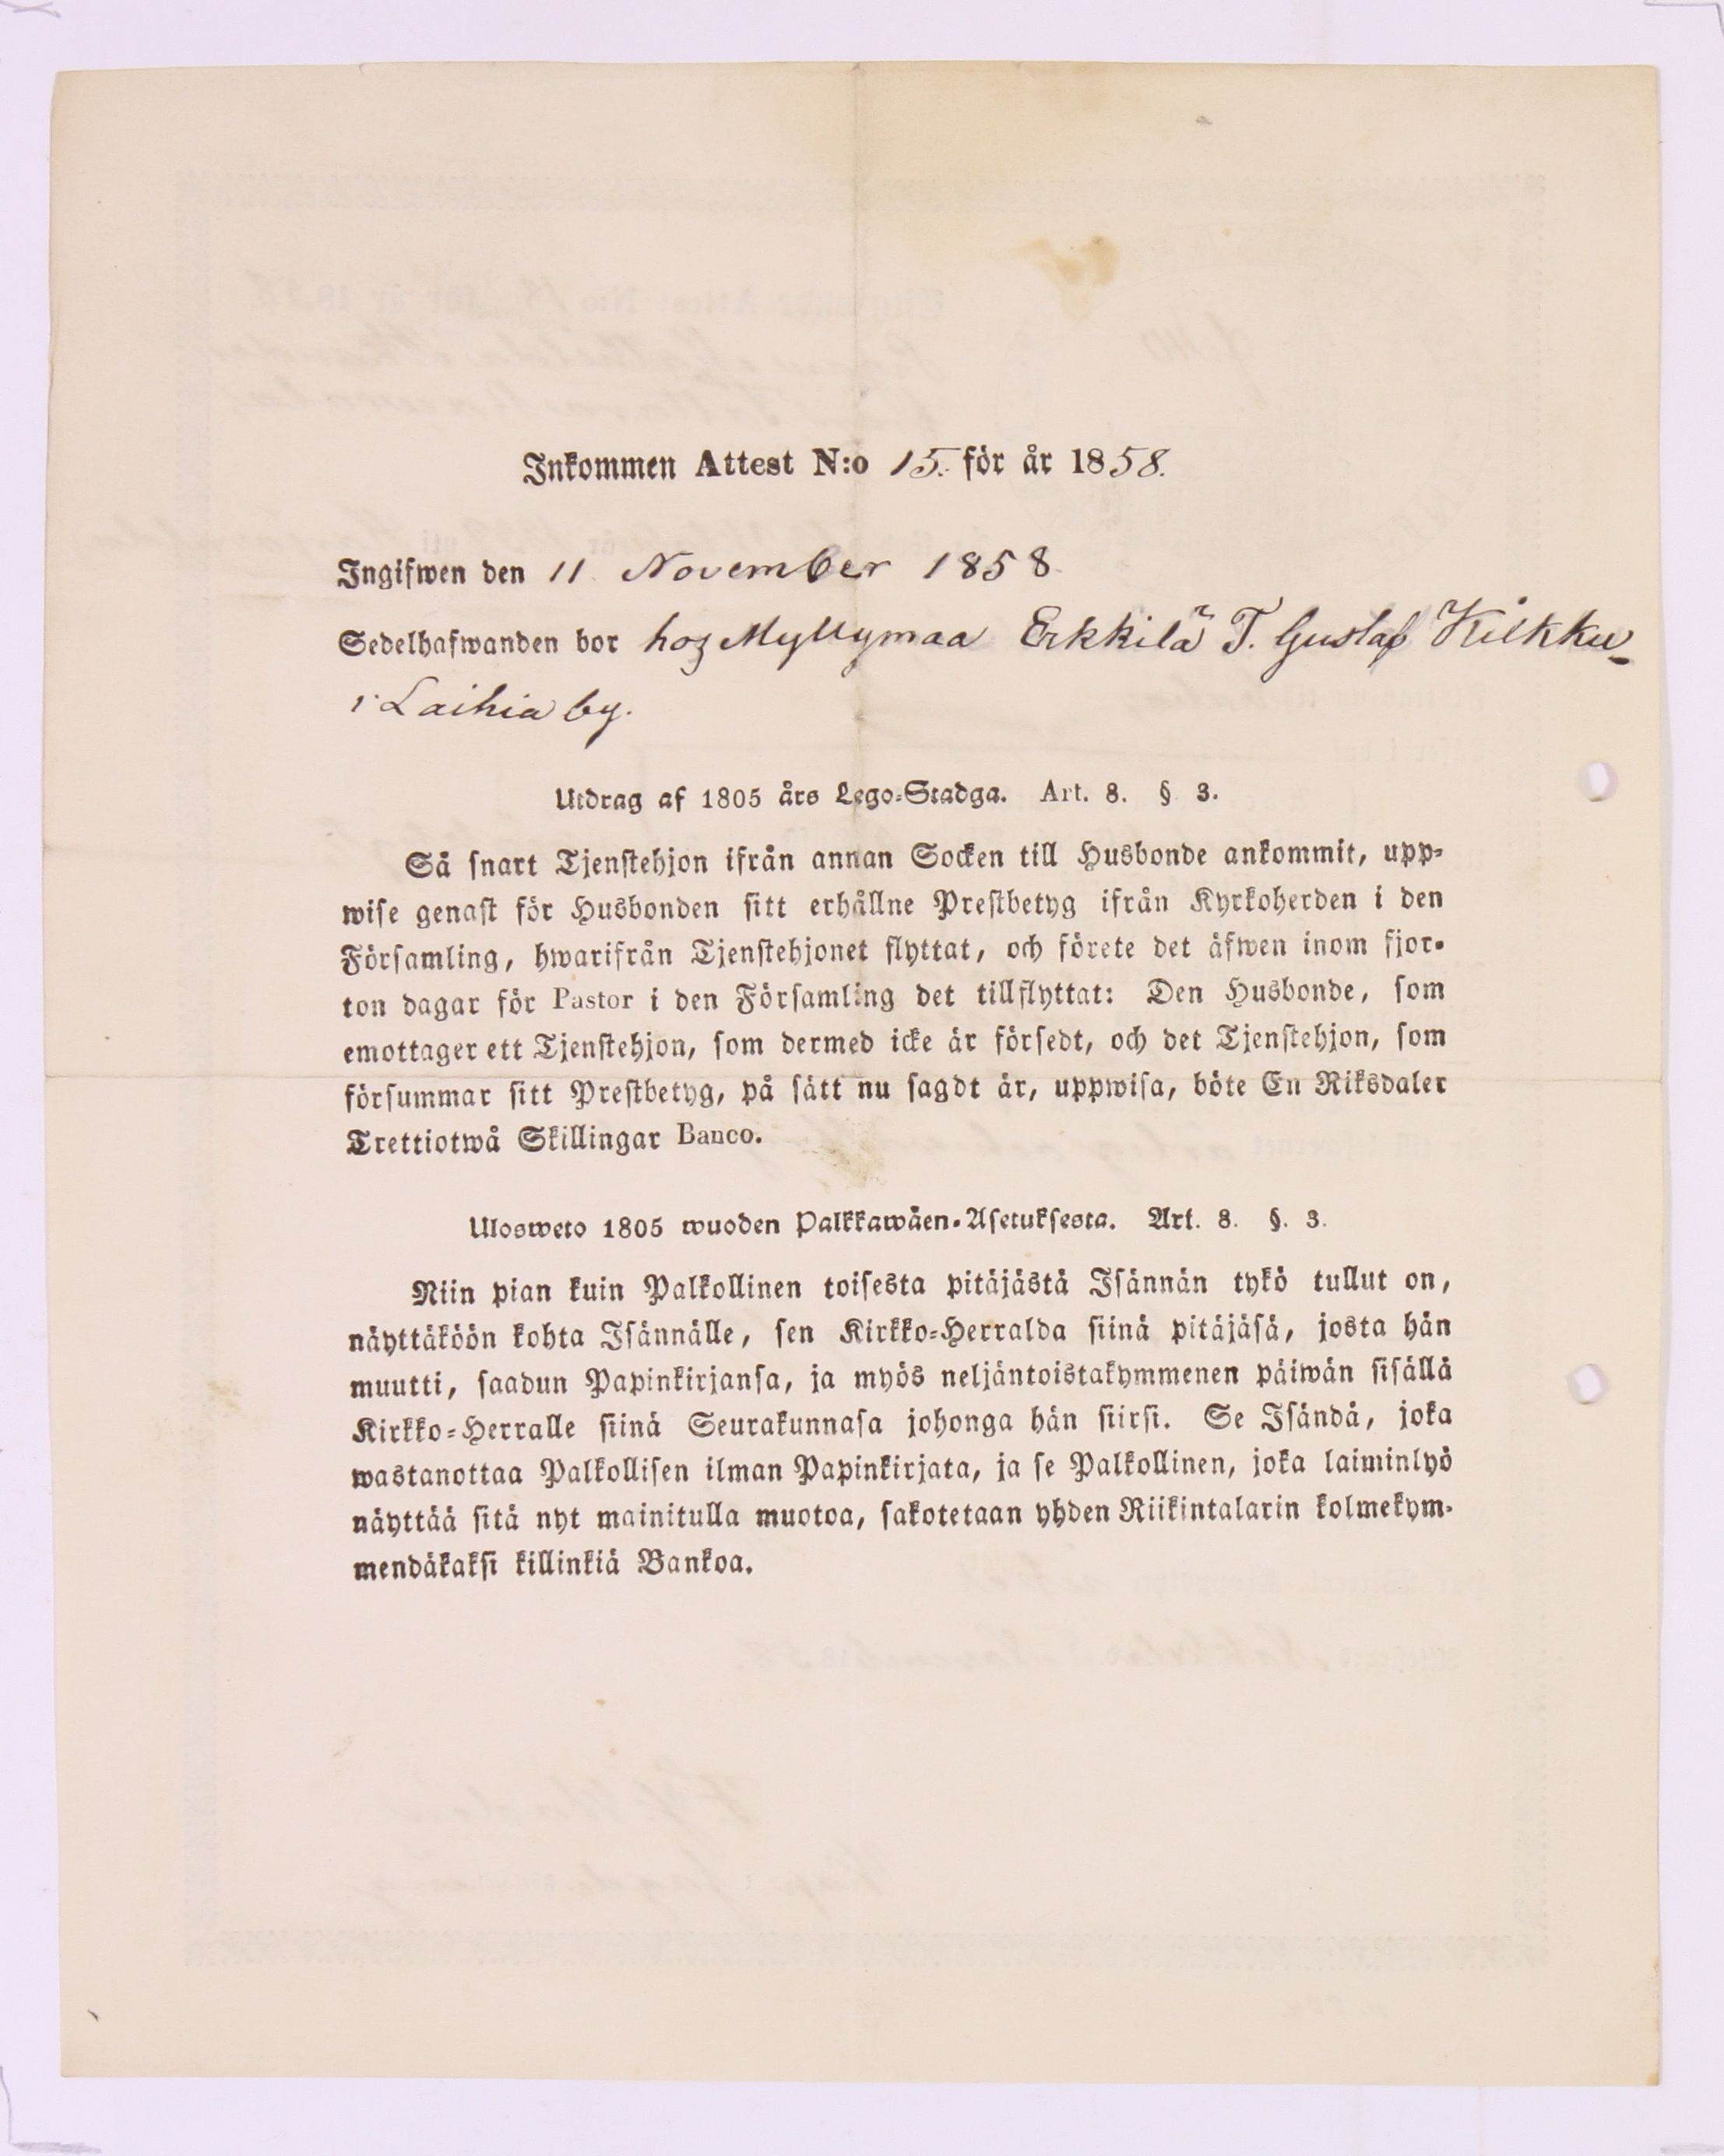 Inkommen Attest N:o 15. för år 1858.
Ingifwen den 11 November 1858
Sedelhafwanden bor hoz Myllymaa Erkkilä T. Gustaf Kilkku
i Laihia by.
Utdrag af 1805 års Lego-Stadga. Art. 8. § 3.
Så snart Tjenstehjon ifrån annan Socken till Husbonde ankommit, upp-
wise genast för Husbonden sitt erhållne Prestbetyg ifrån Kyrkoherden i den
Församling, hwarifrån Tjenstehjonet flyttat, och förete det äfwen inom fjor-
ton dagar för Pastor i den Församling det tillflyttat: Den Husbonde, som
emottager ett Tjenstehjon, som dermed icke är försedt, och det Tjenstehjon, som
försummar sitt Prestbetyg, på sätt nu sagdt är, uppwisa, böte En Riksdaler
Trettiotwå Skillingar Banco.
Ulosweto 1805 wuoden Palkkawäen-Asetuksesta. Art. 8. §. 3.
Niin pian kuin Palkollinen toisesta pitäjästä Isännän tykö tullut on,
näyttäköön kohta Isännälle, sen Kirkko-Herralda siinä pitäjäsä, josta hän
muutti, saadun Papinkirjansa, ja myös neljäntoistakymmenen päiwän sisällä
Kirkko-Herralle siinä Seurakunnasa johonga hän siirsi. Se Isändä, joka
wastanottaa Palkollisen ilman Papinkirjata, ja se Palkollinen, joka laiminlyö
näyttää sitä nyt mainitulla muotoa, sakotetaan yhden Riikintalarin kolmekym-
mendäkaksi killinkiä Bankoa.